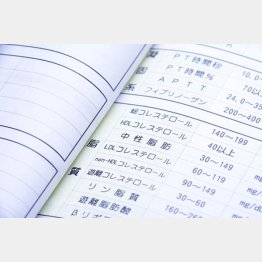 ＰＴ時間秒
ＰＴ時間％ 10.0～
ＡＰＴＴ 70以
系 フィブリノーゲン 24.0～35
200～400
総コレステロール
HDLコレステロール 140～199
中性脂肪 40以上
脂 LDLコレステロール 30～149
non-HDLコレステロール 60～119
質 遊離コレステロール 90～149
リン脂質 30～60 mg/
遊離脂肪酸 150～ mg/dL
βリポ 160～